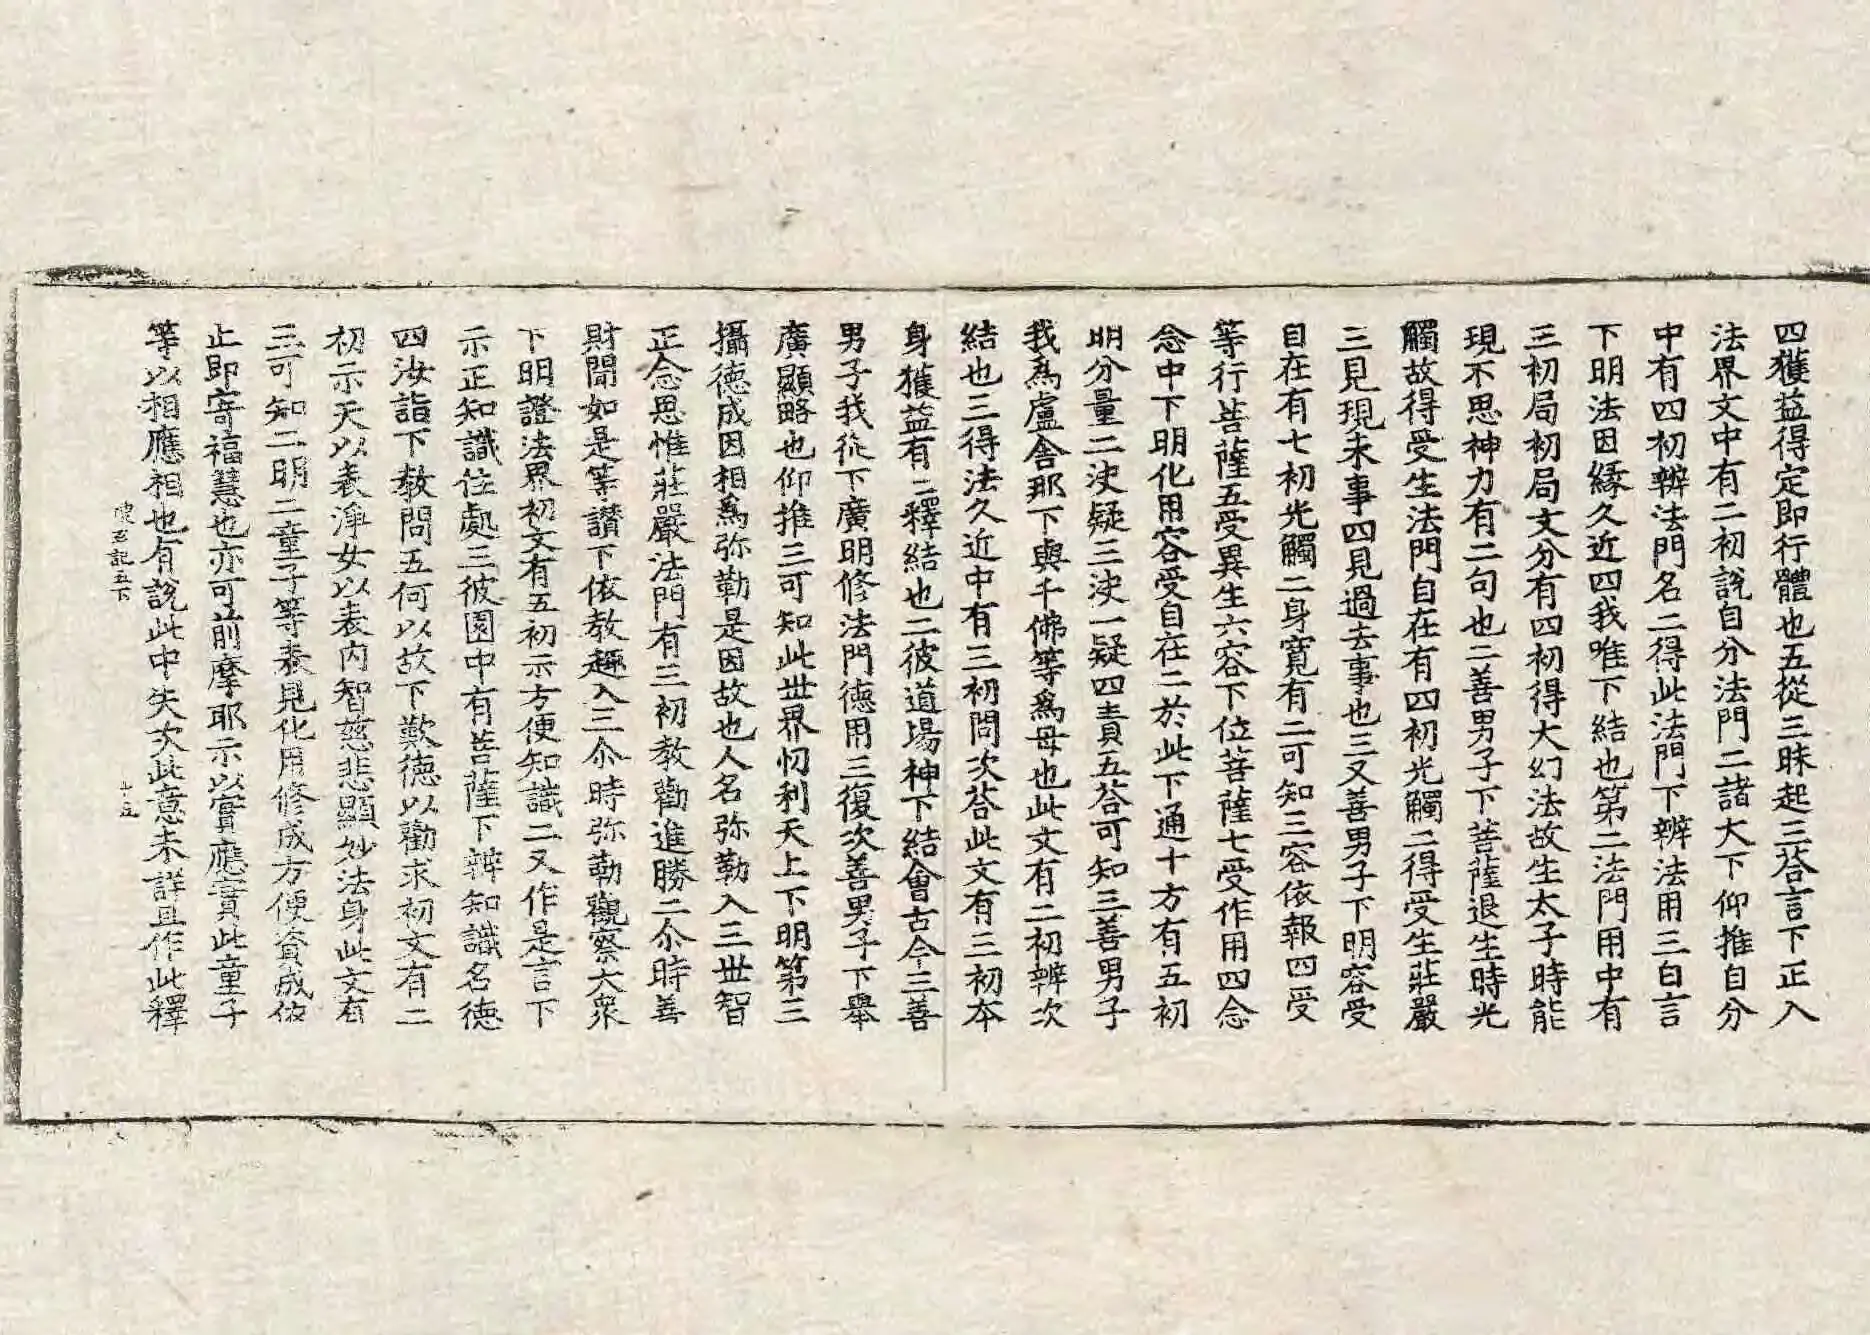 四獲益得定即行體也五從三昧起三荅言下正入
法界文中有二初說自分法門二諸大下仰推自分
中有四初辨法門名二得此法門下辨法用三白言
下明法因緣久近四我唯下結也第二法門用中有
三初局初局文分有四初得大幻法故生太子時能
現不思神力有二句也二善男子下菩薩退生時光
觸故得受生法門自在有四初光觸二得受生莊嚴
三見現未事四見過去事也三又善男子下明容受
自在有七初光觸二身寬有二可知三容依報四受
等行菩薩五受異生六容下位菩薩七受作用四念
念中下明化用容受自在二於此下通十方有五初
明分量二決疑三決一疑四責五荅可知三善男子
我為盧舍那下與千佛等為母也此文有二初辨次
結也三得法久近中有三初問次荅此文有三初本
身獲益有二釋結也二彼道場神下結會古今三善
男子我從下廣明修法門德用三復次善男子下舉
廣顯略也仰推三可知此世界忉利天上下明第三
攝德成因相為弥勒是因故也人名弥勒入三世智
正念思惟莊嚴法門有三初教勸進勝二尒時善
財聞如是等讃下依教趣入三尒時弥勒觀察大衆
下明證法界初文有五初示方便知識二又作是言下
示正知識住處三彼園中有菩薩下辨知識名德
四汝詣下教問五何以故下歎德以勸求初文有二
初示天以表淨女以表內智慈悲顯妙法身此文有
三可知二明二童子等表見化用修成方便資成依
止即寄福慧也亦可前摩耶示以實應實此童子
等以相應相也有說此中失次此意未詳且作此釋
記五下